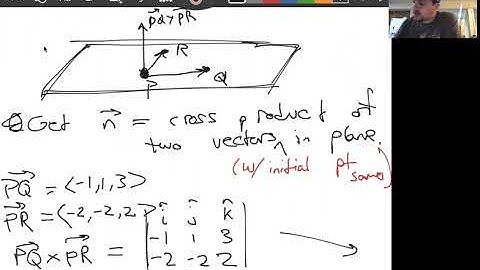 PQ × PR
R
Q
P
② Get n = cross product of
two vectors in plane.
(w/ initial pt same)
PQ = <-1, 1, 3>
PR = <-2, -2, 2>
PQ × PR = | i j k
-1 1 3
-2 -2 2 |